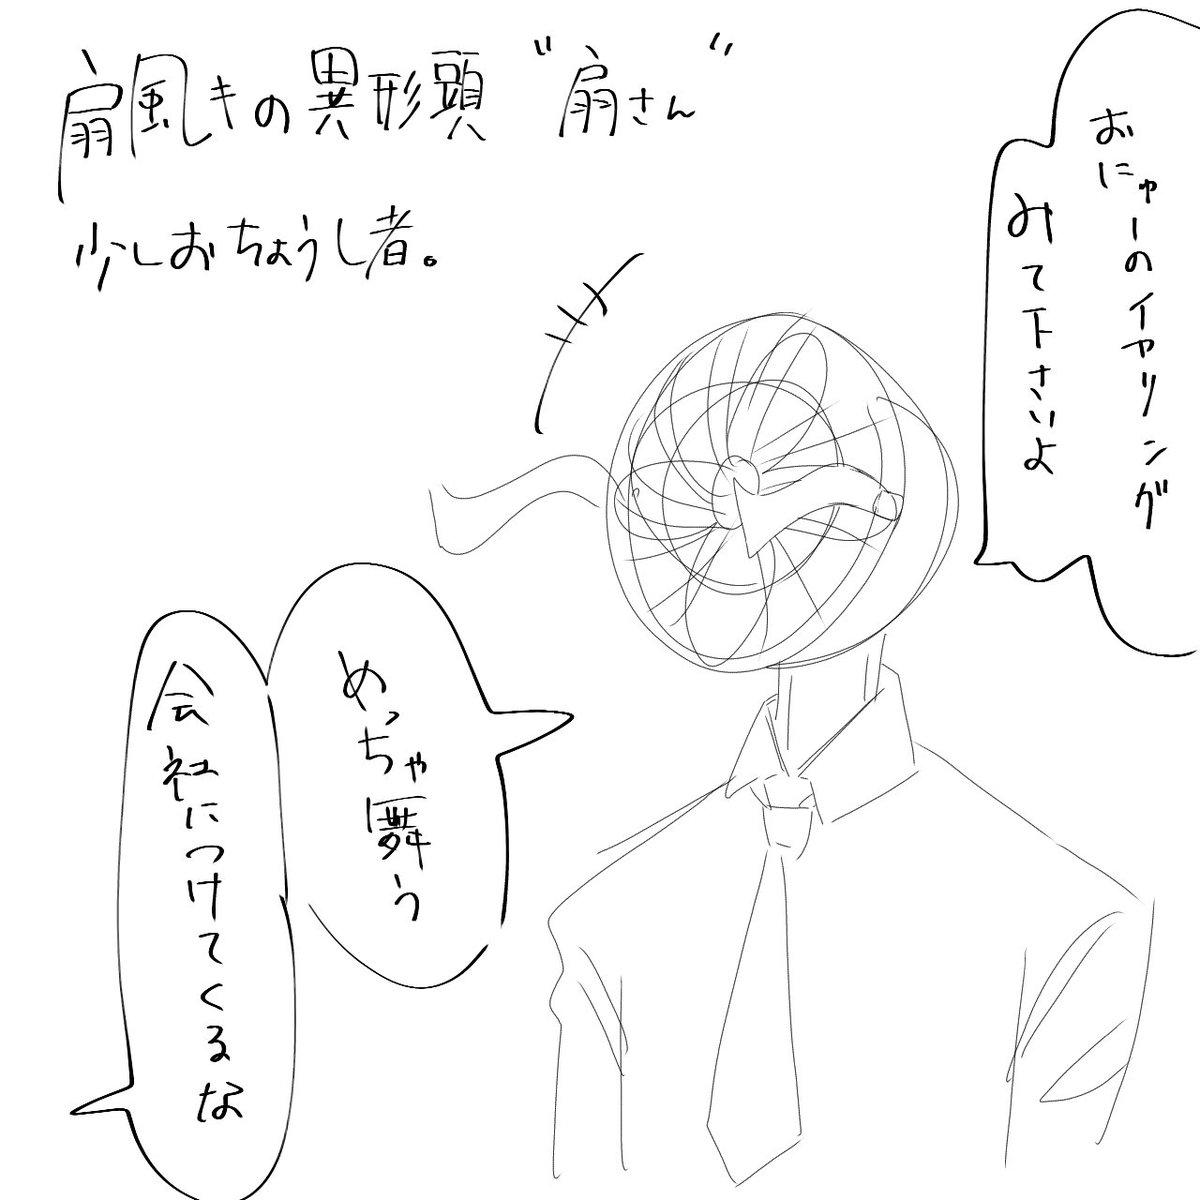 扇風きの異形頭 "扇さん"
少しおちょうし者。
おにゅーのイヤリング
みて下さいよ
めっちゃ舞う
会社につけてくるな